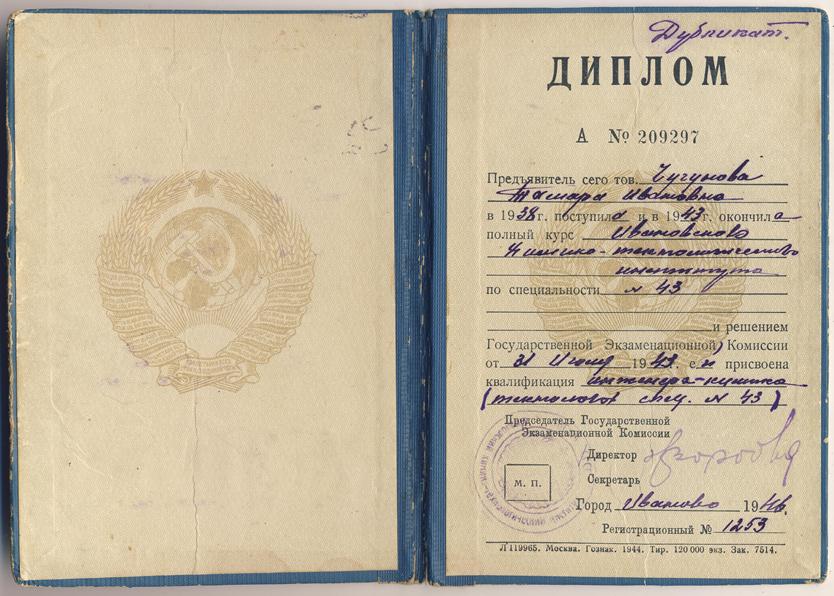 Дубликат.
ДИПЛОМ
А № 209297
Предъявитель сего тов. Чугунова
Тамара Ивановна
в 1938 г. поступила и в 1943 г. окончила
полный курс Ивановского
Химико-технологического
института
по специальности № 43
и решением
Государственной Экзаменационной Комиссии
от 31 Июля 1943 г. ей присвоена
квалификация инженера-химика
(технолога спец. № 43)
Председатель Государственной
Экзаменационной Комиссии
Директор
Секретарь
М. П.
Город Иваново 1946.
Регистрационный № 1253
Л119965. Москва. Гознак. 1944. Тир. 120 000 экз. Зак. 7514.